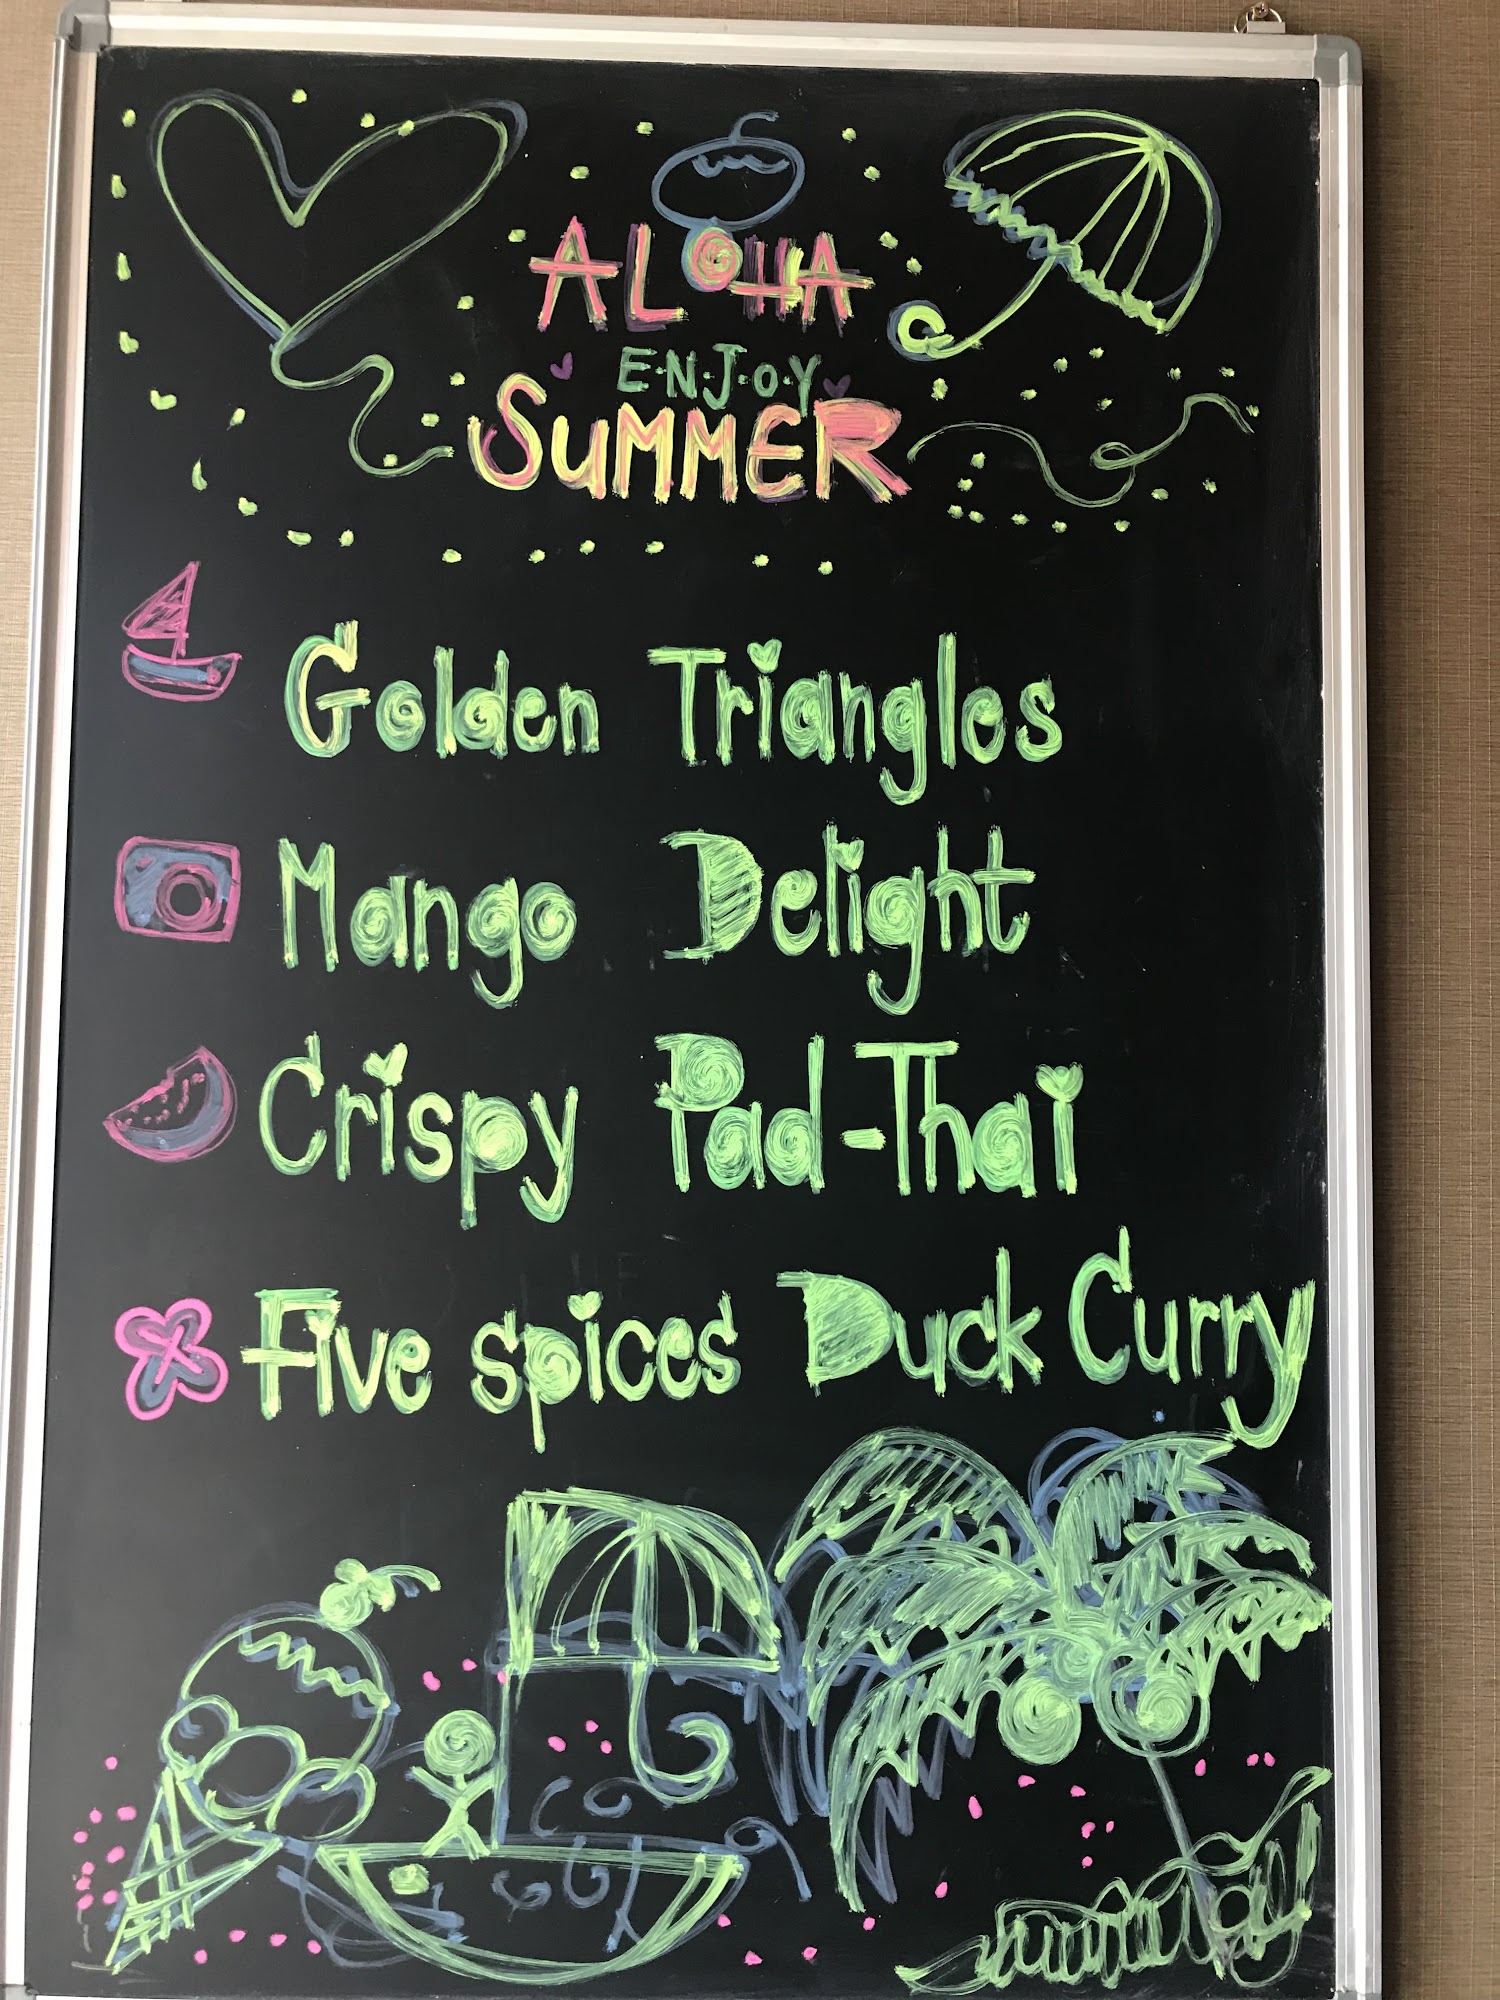 ALOHA
E·N·J·O·Y
SUMMER
Golden Triangles
Mango Delight
Crispy Pad-Thai
Five spices Duck Curry